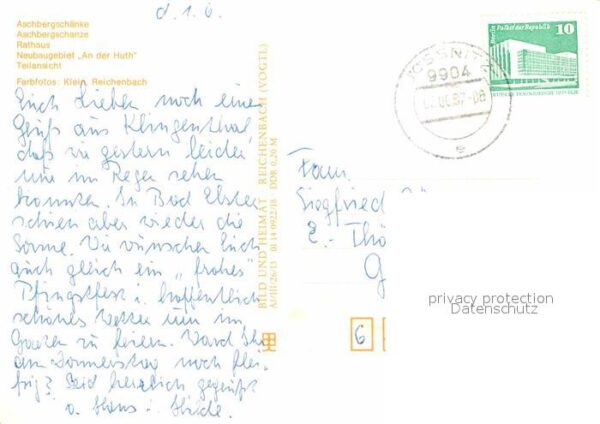 d. 1. 6.
Aschbergschänke
Aschbergschanze
Rathaus
Neubaugebiet „An der Huth"
Teilansicht
Farbfotos: Klein, Reichenbach
Euch Lieben noch einen
Gruß aus Klingenthal,
daß wir gestern leider
nur im Regen sehen
konnten. In Bad Elster
schien aber wieder die
Sonne. Wir wünschen Euch
auch gleich ein „frohes"
Pfingstfest u. hoffentlich
schönes Wetter um im
Garten zu feiern. Ward Ihr
am Donnerstag noch flei-
ßig? Seid herzlich gegrüßt
v. Hans u. Hilde.
BILD UND HEIMAT REICHENBACH (VOGTL)
A1/III/26/13 01 14 0922/18 DDR 0,20 M
Berlin, Palast der Republik
10
DEUTSCHE DEMOKRATISCHE REPUBLIK
9904
87-08
e
Fam.
Siegfried
E.-Thö
G
6
privacy protection
Datenschutz